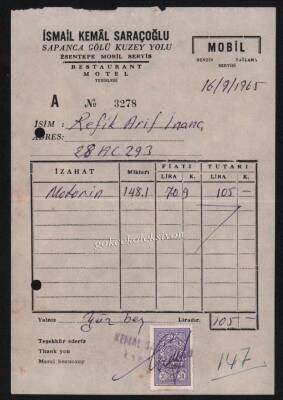 İSMAİL KEMÂL SARAÇOĞLU
SAPANCA GÖLÜ KUZEY YOLU
ESENTEPE MOBİL SERVİS
RESTAURANT
MOTEL
TESİSLERİ
MOBİL
BENZİN YAĞLAMA
SERVİSİ
16/9/1965
A № 3278
İSİM: Refik Arif İnanç
ADRES:
28 AC 293
İZAHAT Miktarı FİATI TUTARI
LİRA K. LİRA K.
Motorin 148.1 70.9 105 -
gokcekoleksiyon
Yalnız Yüz beş Liradır. 105 -
Teşekkür ederiz
Thank you
Merci beaucoup
KEMAL
147